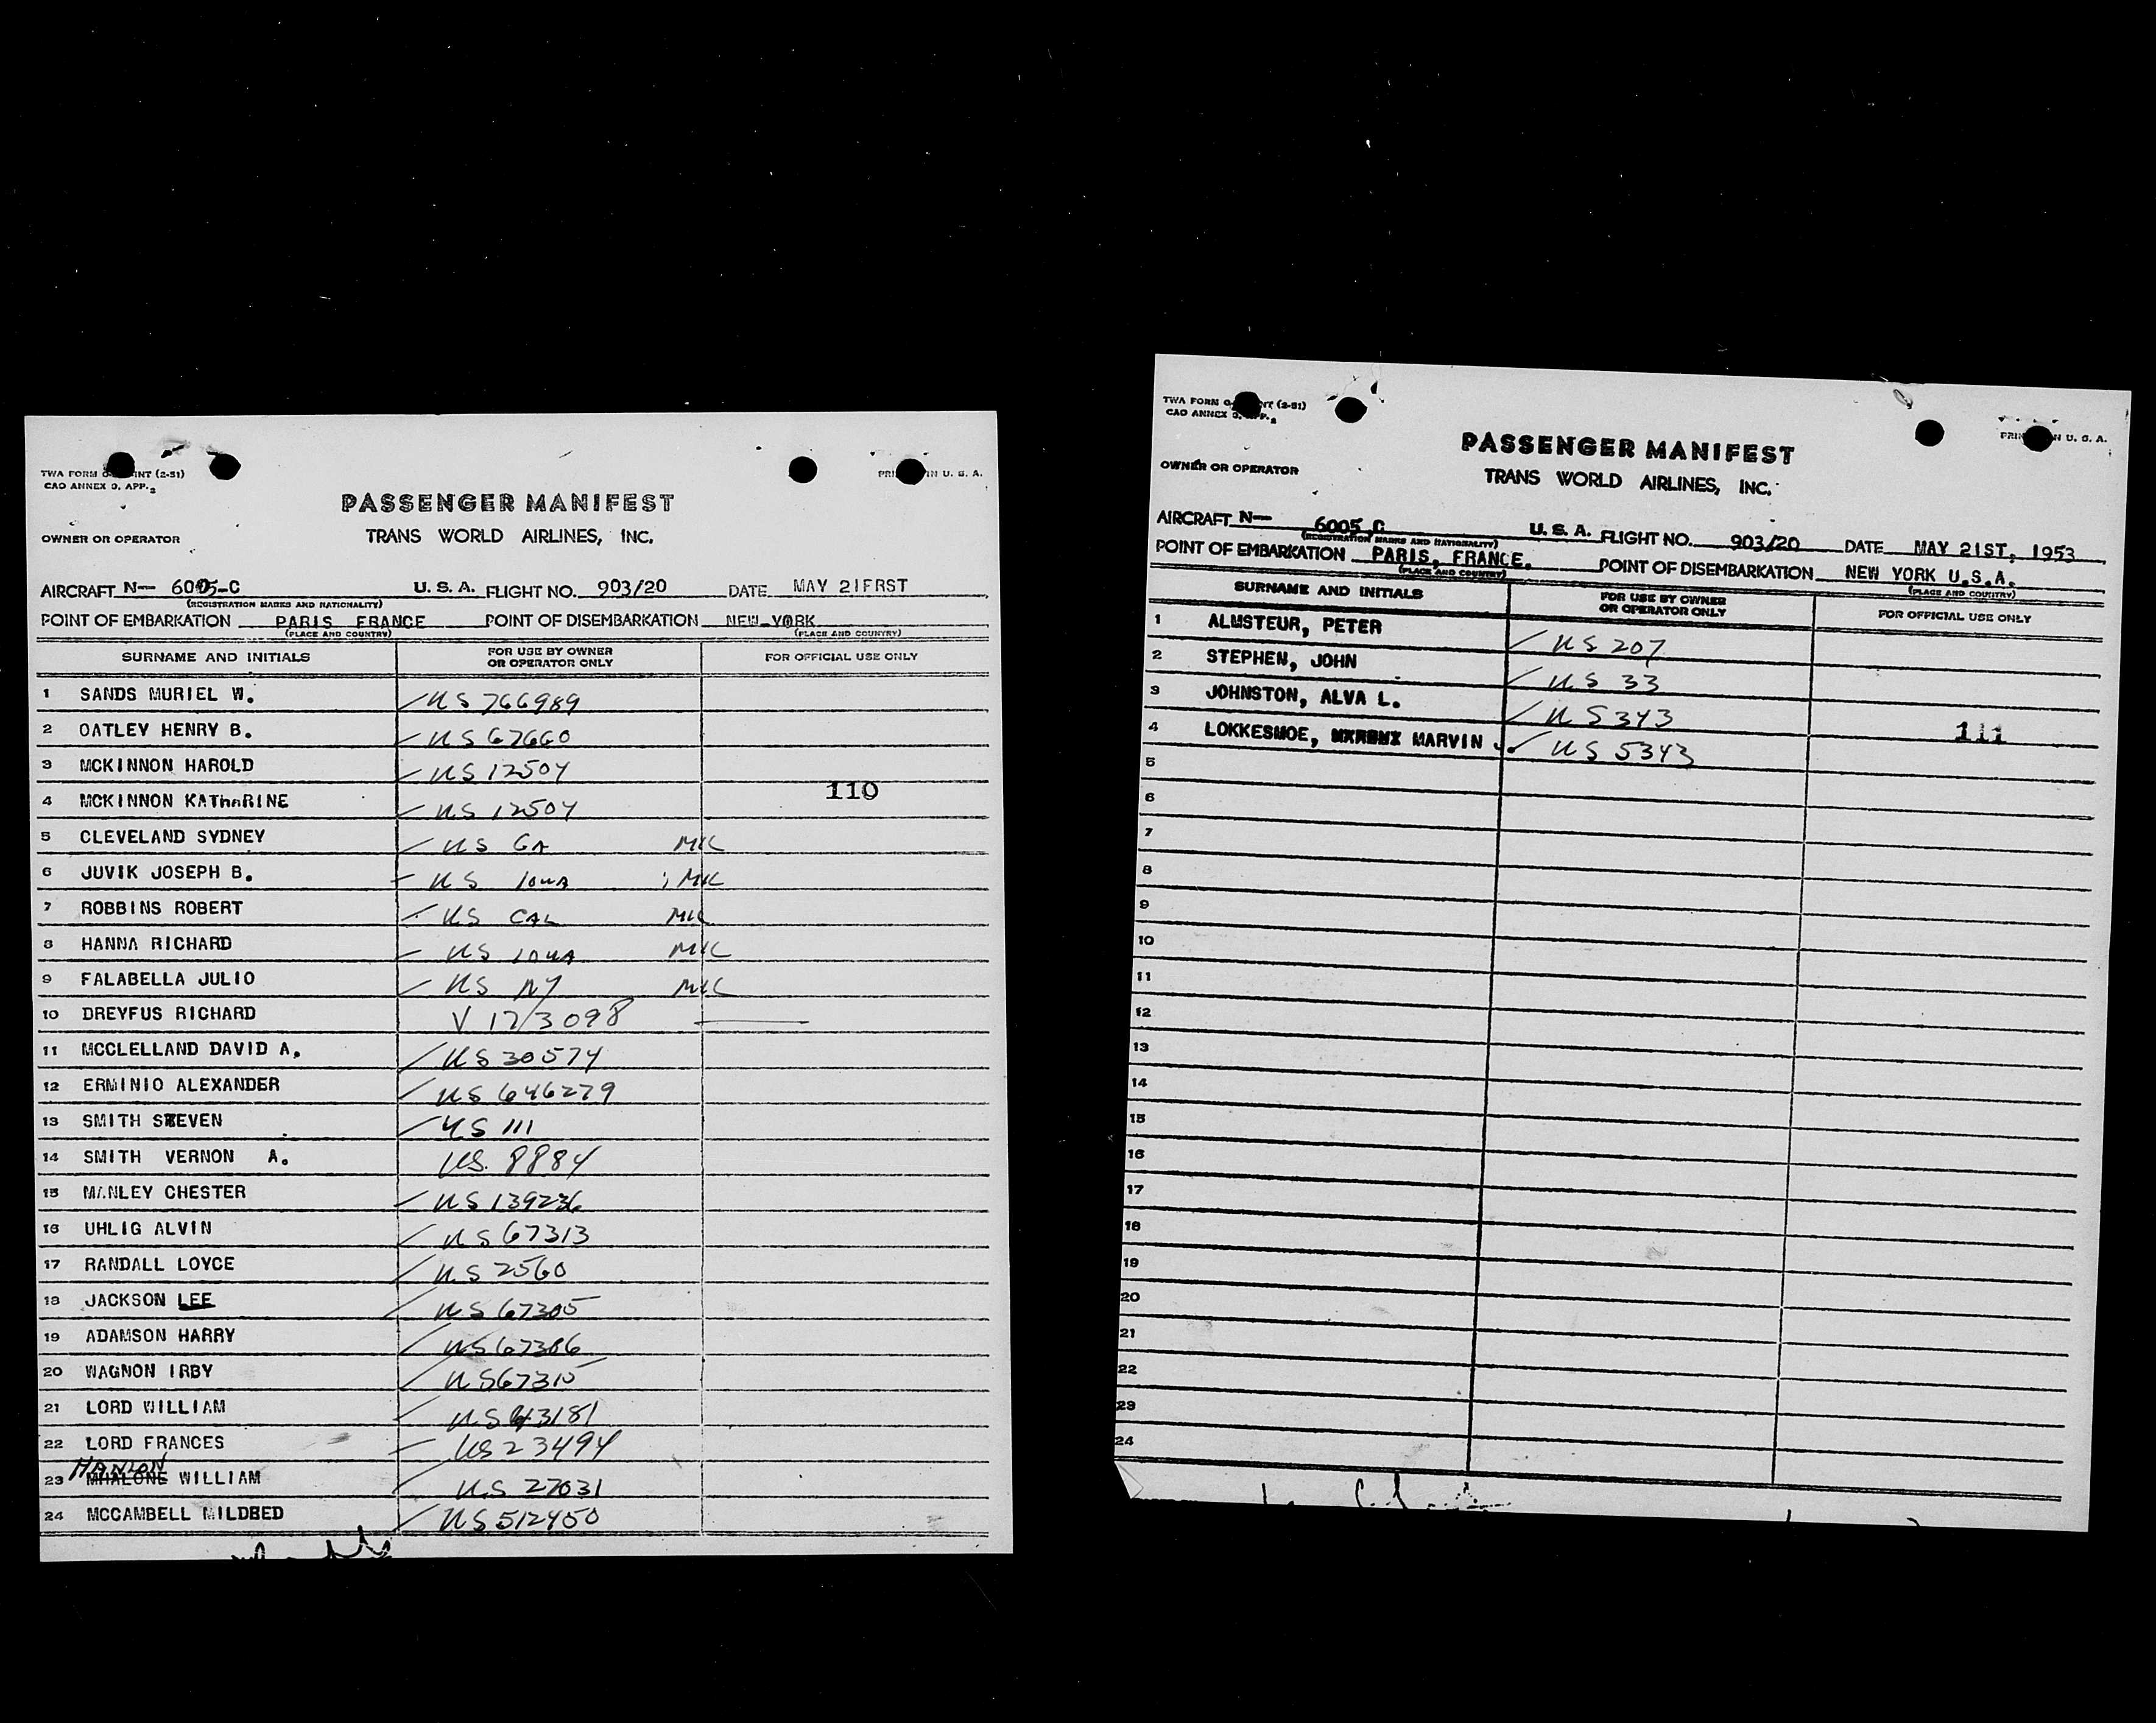 TWA FORM (2-51)
CAO ANNEX 9, APP. 2
PRINTED IN U. S. A.
PASSENGER MANIFEST
OWNER OR OPERATOR
TRANS WORLD AIRLINES, INC.
AIRCRAFT N— 6005-C U. S. A. FLIGHT NO. 903/20 DATE MAY 21FRST
(REGISTRATION MARKS AND NATIONALITY)
POINT OF EMBARKATION PARIS FRANCE POINT OF DISEMBARKATION NEW YORK
(PLACE AND COUNTRY) (PLACE AND COUNTRY)
SURNAME AND INITIALS FOR USE BY OWNER OR OPERATOR ONLY FOR OFFICIAL USE ONLY
1 SANDS MURIEL W. US 766989
2 OATLEY HENRY B. US 67660
3 MCKINNON HAROLD US 12504
110
4 MCKINNON KAThaRINE US 12504
5 CLEVELAND SYDNEY US GA MIL
6 JUVIK JOSEPH B. US IOWA MIL
7 ROBBINS ROBERT US CAL MIL
8 HANNA RICHARD US IOWA MIL
9 FALABELLA JULIO US NY MIL
10 DREYFUS RICHARD V 1213098
11 MCCLELLAND DAVID A. US 30574
12 ERMINIO ALEXANDER US 646279
13 SMITH STEVEN US 111
14 SMITH VERNON A. US 8884
15 MANLEY CHESTER US 139236
16 UHLIG ALVIN US 67313
17 RANDALL LOYCE US 2560
18 JACKSON LEE US 67305
19 ADAMSON HARRY US 67306
20 WAGNON IRBY US 67315
21 LORD WILLIAM US 43181
22 LORD FRANCES US 23494
HANLON
23 MHALONE WILLIAM US 27031
24 MCCAMBELL MILDBED US 512450
TWA FORM (2-51)
CAO ANNEX 9, APP. 2
PRINTED IN U. S. A.
PASSENGER MANIFEST
OWNER OR OPERATOR
TRANS WORLD AIRLINES, INC.
AIRCRAFT N— 6005 C U. S. A. FLIGHT NO. 903/20 DATE MAY 21ST, 1953
(REGISTRATION MARKS AND NATIONALITY)
POINT OF EMBARKATION PARIS, FRANCE. POINT OF DISEMBARKATION NEW YORK U.S.A.
(PLACE AND COUNTRY) (PLACE AND COUNTRY)
SURNAME AND INITIALS FOR USE BY OWNER OR OPERATOR ONLY FOR OFFICIAL USE ONLY
1 ALMSTEUR, PETER US 207
2 STEPHEN, JOHN US 33
3 JOHNSTON, ALVA L. US 343
111
4 LOKKESMOE, MARVIN US 5343
5
6
7
8
9
10
11
12
13
14
15
16
17
18
19
20
21
22
23
24